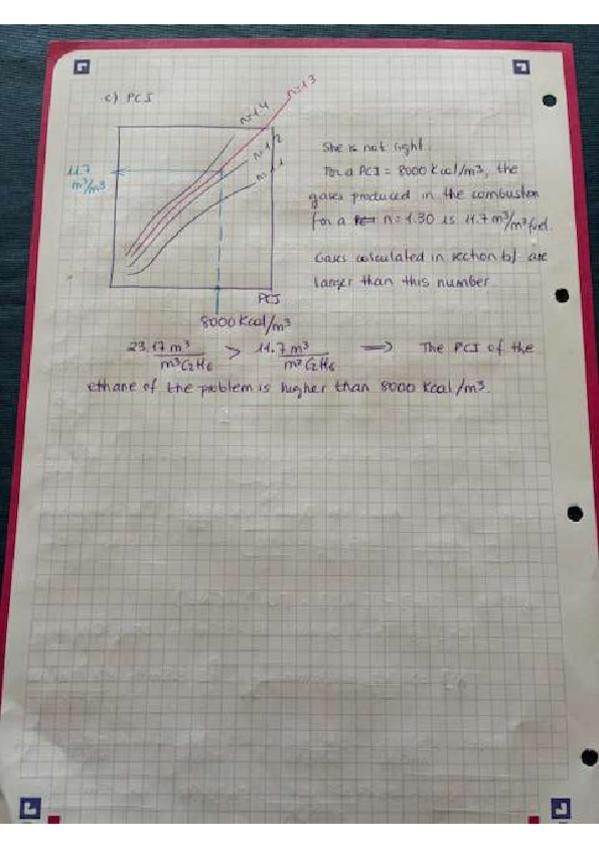 c) PCI
n=1.4
n=1.3
n=1.2
n=1.1
11.7
m³/m³
PCI
8000 Kcal/m³
She is not right.
For a PCI = 8000 Kcal/m³, the
gases produced in the combustion
for a n=1.30 is 11.7 m³/m³ fuel.
Gases calculated in section b) are
larger than this number
23.17 m³/m³C₂H₆ > 11.7 m³/m³ C₂H₆ ⇒ The PCI of the
ethane of the problem is higher than 8000 Kcal/m³.